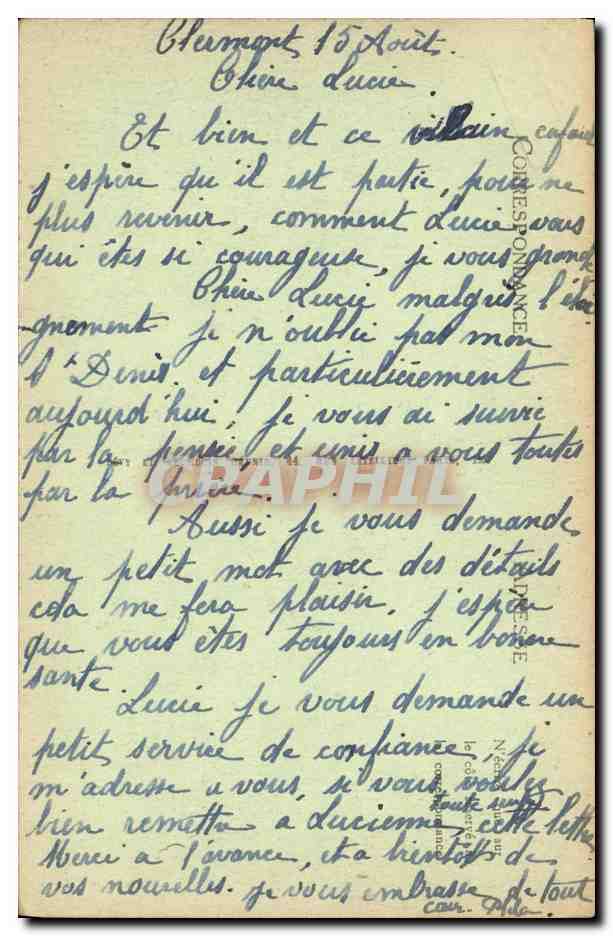 Clermont 15 Août.
Chère Lucie.
Et bien et ce vilain cafard
j'espère qu'il est partie, pour ne
plus revenir, comment Lucie vous
qui êtes si courageuse, je vous gronde
Chère Lucie malgrés l'éloi
gnement je n'oublie pas mon
St Denis. et particulièrement
aujourd'hui, je vous ai suivie
par la pensée et unis a vous toutes
par la prière.
Aussi je vous demande
un petit mot avec des détails
cela me fera plaisir. j'espère
que vous êtes toujours en bonne
santé
Lucie je vous demande un
petit service de confiance, je
m'adresse a vous, si vous voulez
bien remettre a Lucienne, toute seule cette lettre
Merci a l'avance, et a bientôt de
vos nouvelles. je vous embrasse de tout
cœur.
CORRESPONDANCE
ADRESSE
CARAPHIL